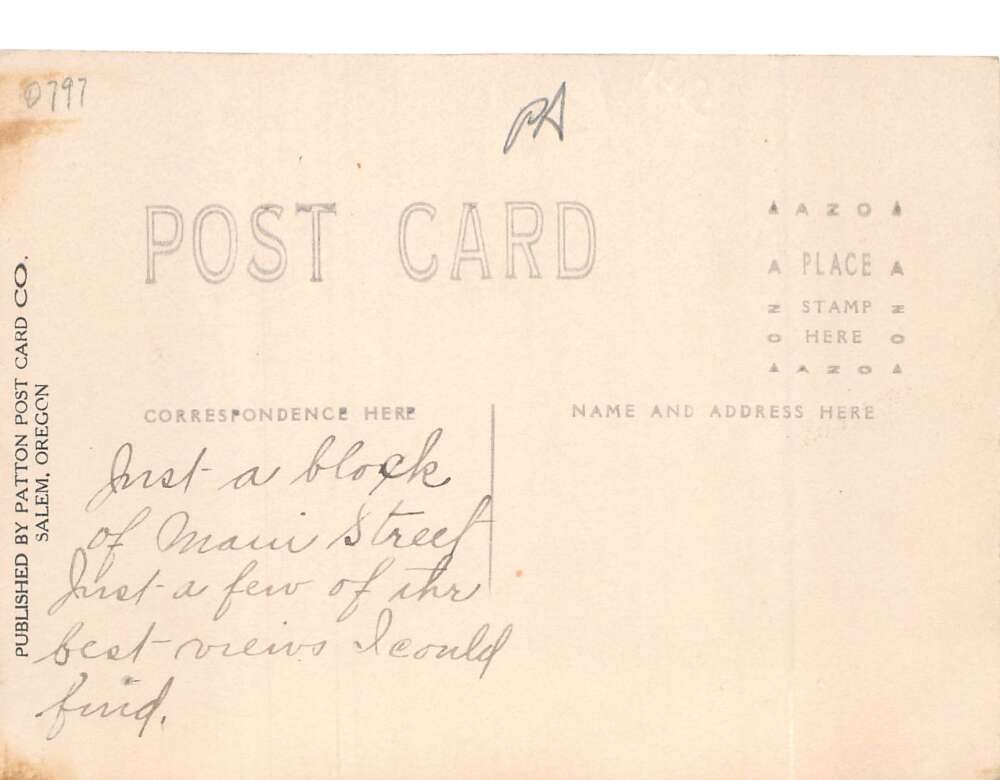 0797
PA
POST CARD
AZO
PLACE
STAMP
HERE
AZO
PUBLISHED BY PATTON POST CARD CO.
SALEM, OREGON
CORRESPONDENCE HERE
NAME AND ADDRESS HERE
Just a block
of Main Street
Just a few of the
best views I could
find.